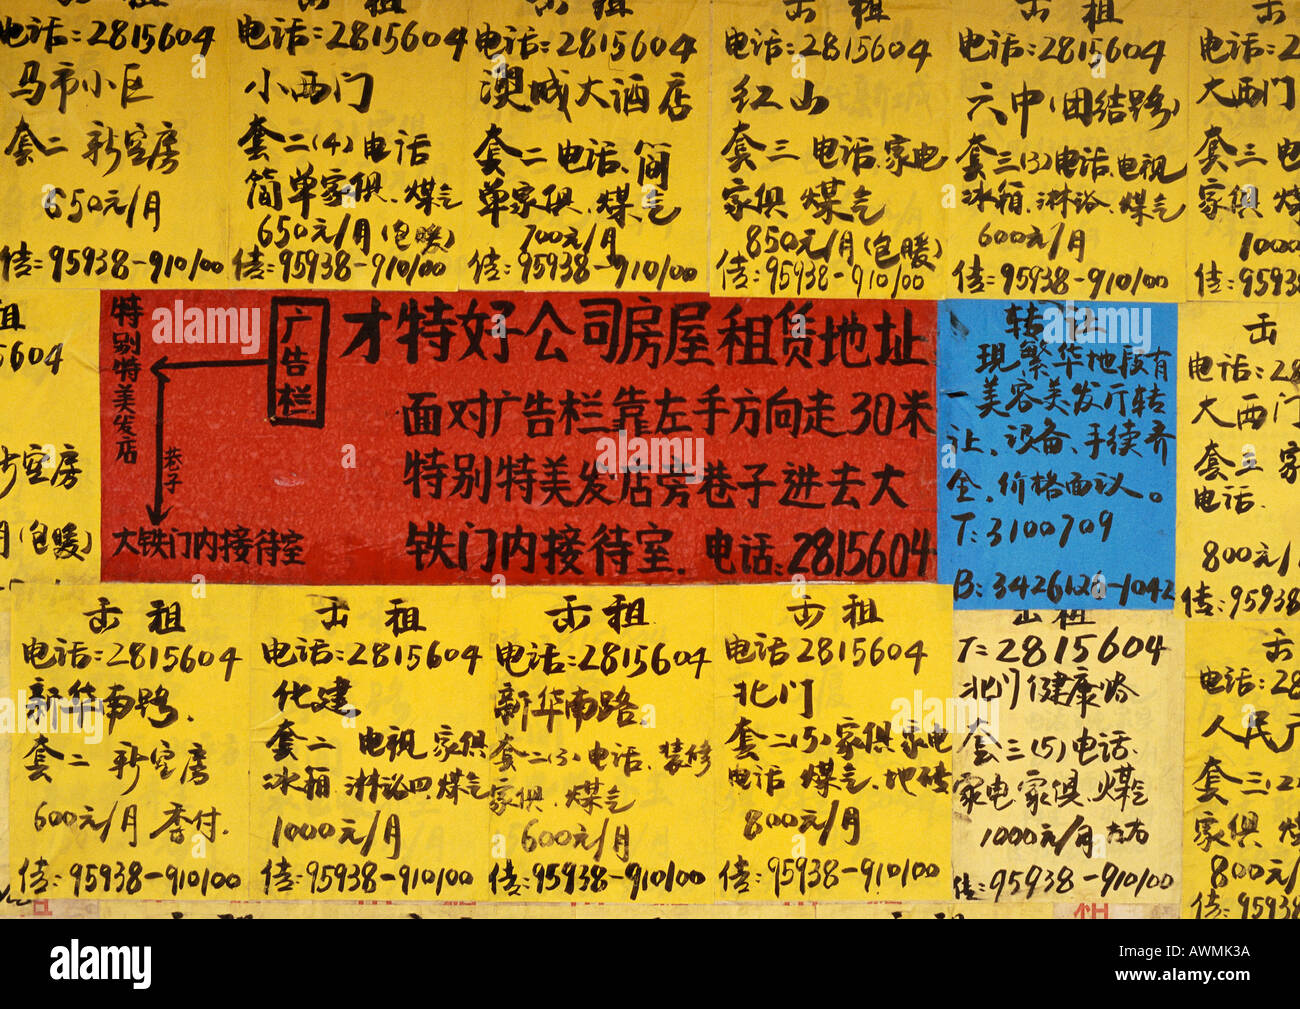 出租
电话:2815604
马市小区
套二 新空房
650元/月
传:95938-910100
电话:2815604
小西门
套二(4)电话
简单家俱.煤气
650元/月(包暖)
传:95938-910100
出租
电话:2815604
澳城大酒店
套二 电话.简
单家俱.煤气
700元/月
传:95938-910100
出租
电话:2815604
红山
套三 电话.家电
家俱 煤气
850元/月(包暖)
传:95938-910100
出租
电话:2815604
六中(团结路)
套三(3)电话.电视
冰箱.淋浴.煤气
600元/月
传:95938-910100
出
电话:2
大西门
套三 电
家俱 煤
1000
传:95938
租
5604
新空房
月(包暖)
特别特美发店
广告栏
巷子
大铁门内接待室
才特好公司房屋租赁地址
面对广告栏靠左手方向走30米
特别特美发店旁巷子进去大
铁门内接待室.电话:2815604
转让
现繁华地段有
一美容美发厅转
让.设备.手续齐
全.价格面议。
T:3100709
B:3426126-1042
出
电话:28
大西门
套三 家
电话.
800元/
传:95938
出租
电话:2815604
新华南路.
套二 新空房
600元/月 季付.
传:95938-910100
出租
电话:2815604
化建
套二 电视 家俱
冰箱 淋浴 煤气
1000元/月
传:95938-910100
出租
电话:2815604
新华南路.
套二(3)电话.装修
家俱.煤气
600元/月
传:95938-910100
出租
电话2815604
北门
套二(5)家俱家电
电话 煤气.地砖
800元/月
传:95938-910100
出租
T:2815604
北门健康路
套三(5)电话.
家电家俱.煤气
1000元/月左右
传:95938-910100
出
电话:28
人民广
套三(2
家俱 煤
800元/
传:95938
alamy
Image ID: AWMK3A
www.alamy.com